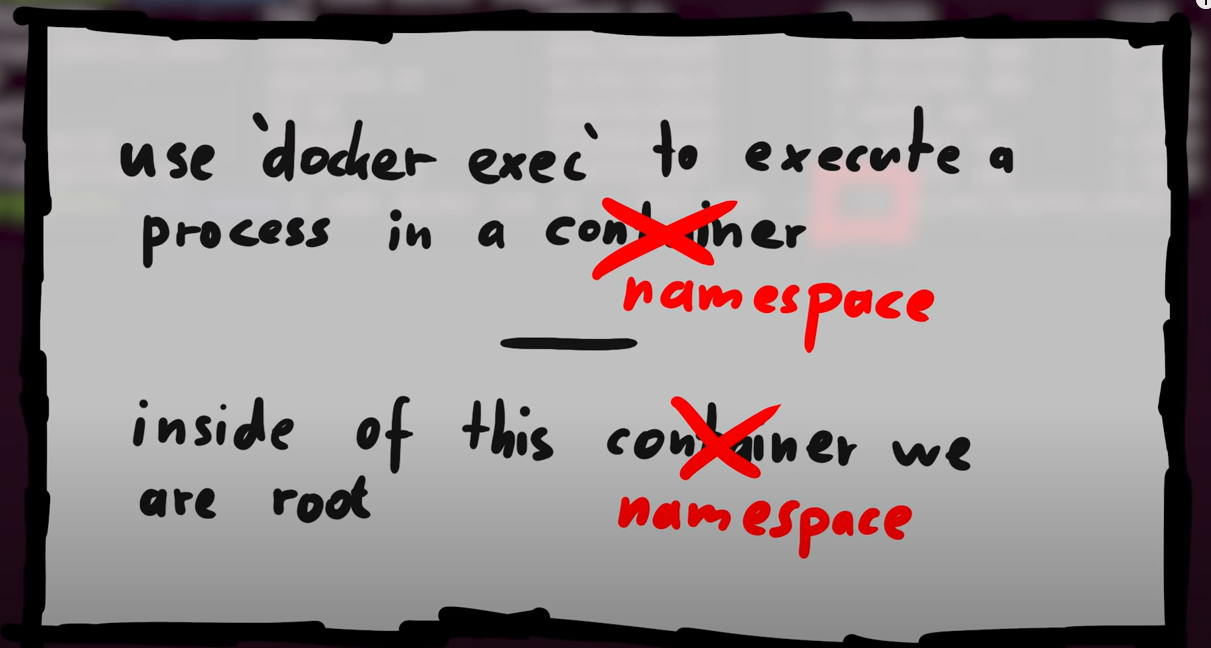 use `docker exec` to execute a
process in a container
namespace
inside of this container we
are root
namespace